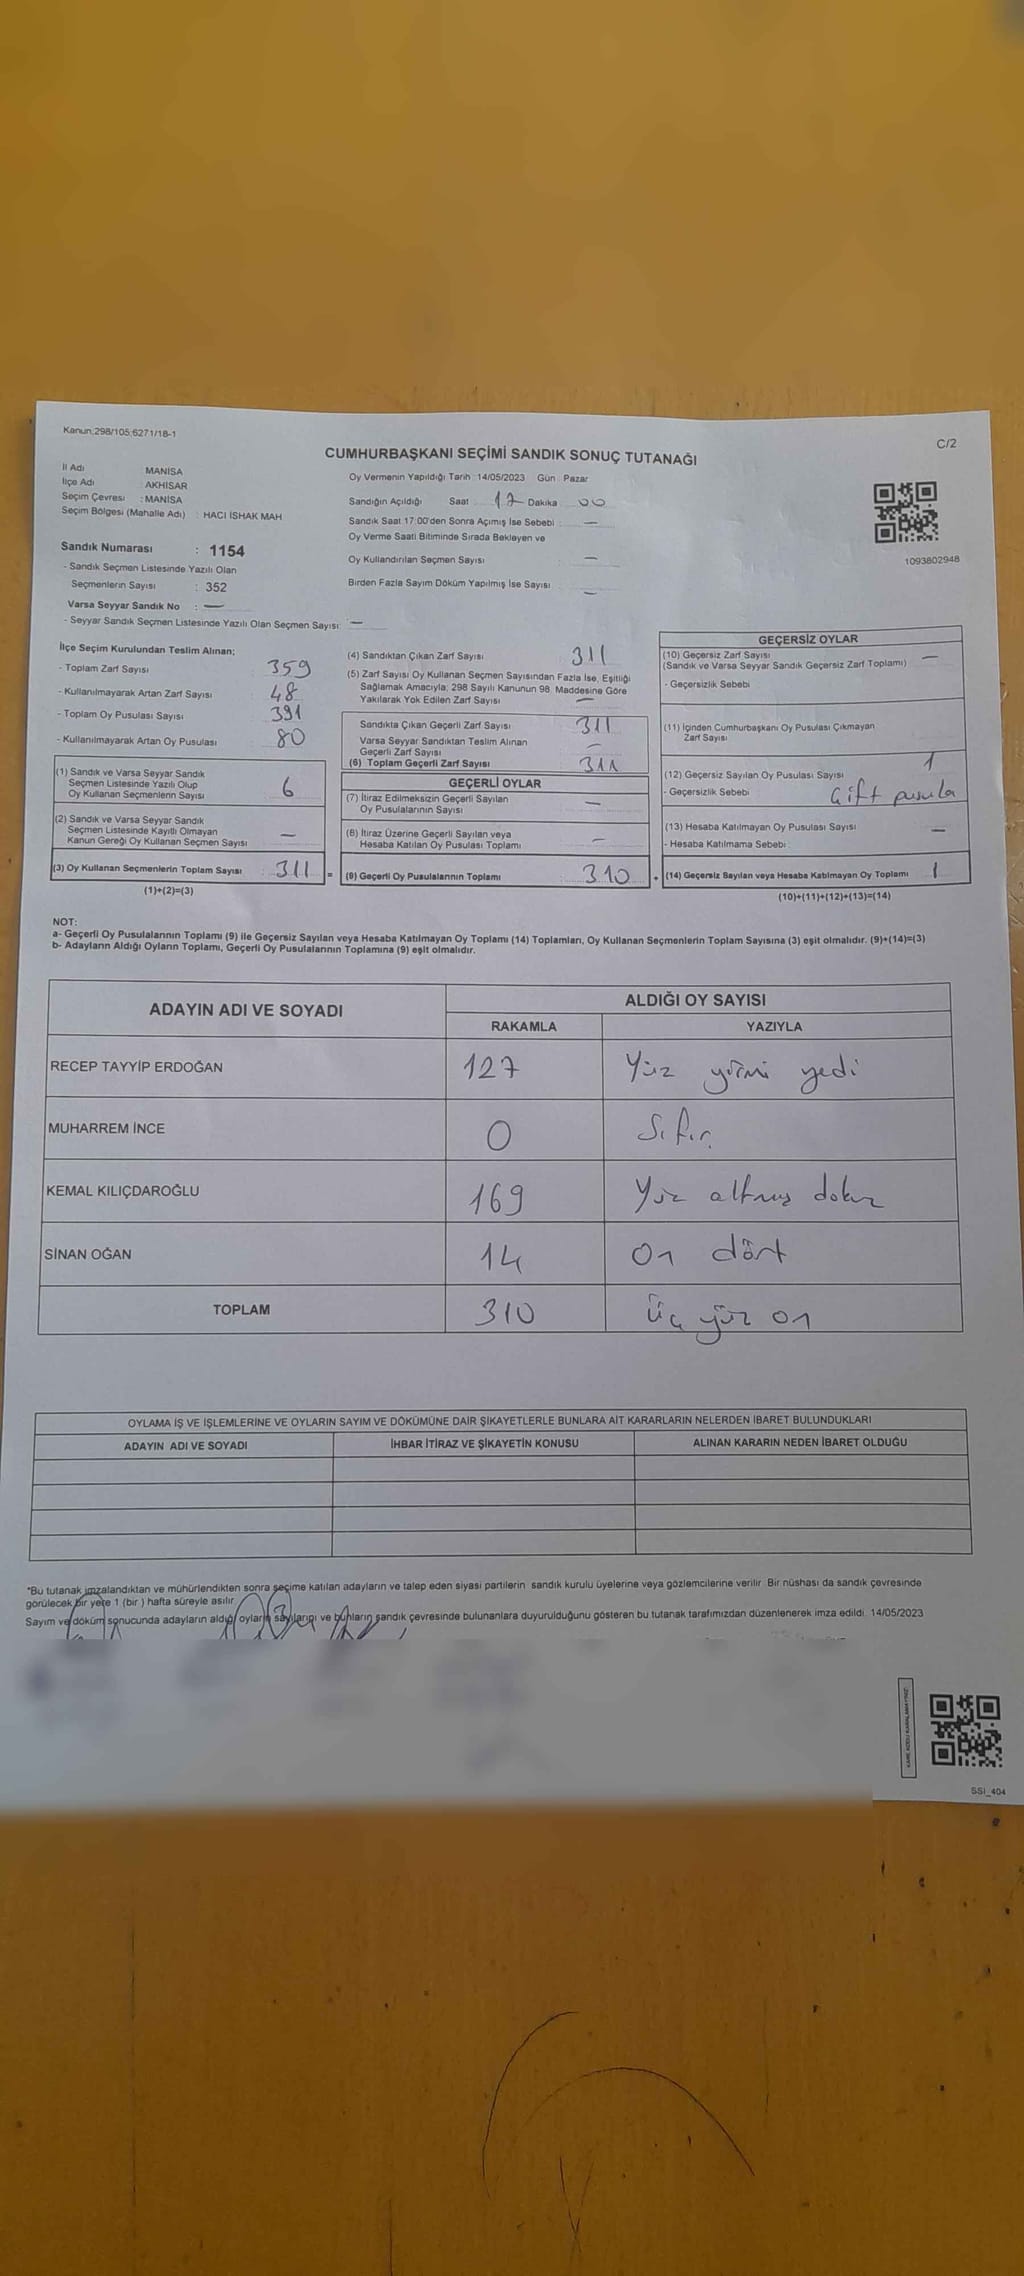 Kanun:298/105;6271/18-1
C/2
CUMHURBAŞKANI SEÇİMİ SANDIK SONUÇ TUTANAĞI
İl Adı MANİSA
İlçe Adı : AKHİSAR
Seçim Çevresi : MANİSA
Seçim Bölgesi (Mahalle Adı) : HACI İSHAK MAH
Oy Vermenin Yapıldığı Tarih : 14/05/2023 Gün : Pazar
Sandığın Açıldığı Saat 17 Dakika 00
Sandık Saat 17:00'den Sonra Açımış İse Sebebi —
Oy Verme Saati Bitiminde Sırada Bekleyen ve
Oy Kullandırılan Seçmen Sayısı —
Birden Fazla Sayım Döküm Yapılmış İse Sayısı —
1093802948
Sandık Numarası : 1154
- Sandık Seçmen Listesinde Yazılı Olan
Seçmenlerin Sayısı : 352
Varsa Seyyar Sandık No : —
- Seyyar Sandık Seçmen Listesinde Yazılı Olan Seçmen Sayısı: —
İlçe Seçim Kurulundan Teslim Alınan;
- Toplam Zarf Sayısı 359
- Kullanılmayarak Artan Zarf Sayısı 48
- Toplam Oy Pusulası Sayısı 391
- Kullanılmayarak Artan Oy Pusulası 80
(1) Sandık ve Varsa Seyyar Sandık
Seçmen Listesinde Yazılı Olup
Oy Kullanan Seçmenlerin Sayısı 6
(2) Sandık ve Varsa Seyyar Sandık
Seçmen Listesinde Kayıtlı Olmayan
Kanun Gereği Oy Kullanan Seçmen Sayısı —
(3) Oy Kullanan Seçmenlerin Toplam Sayısı 311 =
(1)+(2)=(3)
(4) Sandıktan Çıkan Zarf Sayısı 311
(5) Zarf Sayısı Oy Kullanan Seçmen Sayısından Fazla İse, Eşitliği
Sağlamak Amacıyla; 298 Sayılı Kanunun 98. Maddesine Göre
Yakılarak Yok Edilen Zarf Sayısı —
Sandıkta Çıkan Geçerli Zarf Sayısı 311
Varsa Seyyar Sandıktan Teslim Alınan
Geçerli Zarf Sayısı —
(6) Toplam Geçerli Zarf Sayısı 311
GEÇERLİ OYLAR
(7) İtiraz Edilmeksizin Geçerli Sayılan
Oy Pusulalarının Sayısı —
(8) İtiraz Üzerine Geçerli Sayılan veya
Hesaba Katılan Oy Pusulası Toplamı —
(9) Geçerli Oy Pusulalarının Toplamı 310 +
GEÇERSİZ OYLAR
(10) Geçersiz Zarf Sayısı —
(Sandık ve Varsa Seyyar Sandık Geçersiz Zarf Toplamı)
- Geçersizlik Sebebi
(11) İçinden Cumhurbaşkanı Oy Pusulası Çıkmayan
Zarf Sayısı
(12) Geçersiz Sayılan Oy Pusulası Sayısı 1
- Geçersizlik Sebebi Çift pusula
(13) Hesaba Katılmayan Oy Pusulası Sayısı —
- Hesaba Katılmama Sebebi :
(14) Geçersiz Sayılan veya Hesaba Katılmayan Oy Toplamı 1
(10)+(11)+(12)+(13)=(14)
NOT:
a- Geçerli Oy Pusulalarının Toplamı (9) ile Geçersiz Sayılan veya Hesaba Katılmayan Oy Toplamı (14) Toplamları, Oy Kullanan Seçmenlerin Toplam Sayısına (3) eşit olmalıdır. (9)+(14)=(3)
b- Adayların Aldığı Oyların Toplamı, Geçerli Oy Pusulalarının Toplamına (9) eşit olmalıdır.
ADAYIN ADI VE SOYADI ALDIĞI OY SAYISI
RAKAMLA YAZIYLA
RECEP TAYYİP ERDOĞAN 127 Yüz yirmi yedi
MUHARREM İNCE 0 Sıfır
KEMAL KILIÇDAROĞLU 169 Yüz altmış dokuz
SİNAN OĞAN 14 On dört
TOPLAM 310 Üç yüz on
OYLAMA İŞ VE İŞLEMLERİNE VE OYLARIN SAYIM VE DÖKÜMÜNE DAİR ŞİKAYETLERLE BUNLARA AİT KARARLARIN NELERDEN İBARET BULUNDUKLARI
ADAYIN ADI VE SOYADI İHBAR İTİRAZ VE ŞİKAYETİN KONUSU ALINAN KARARIN NEDEN İBARET OLDUĞU
*Bu tutanak imzalandıktan ve mühürlendikten sonra seçime katılan adayların ve talep eden siyasi partilerin sandık kurulu üyelerine veya gözlemcilerine verilir. Bir nüshası da sandık çevresinde
görülecek bir yere 1 (bir ) hafta süreyle asılır.
Sayım ve döküm sonucunda adayların aldığı oyların sayılarını ve bunların sandık çevresinde bulunanlara duyurulduğunu gösteren bu tutanak tarafımızdan düzenlenerek imza edildi. 14/05/2023
SSI_404